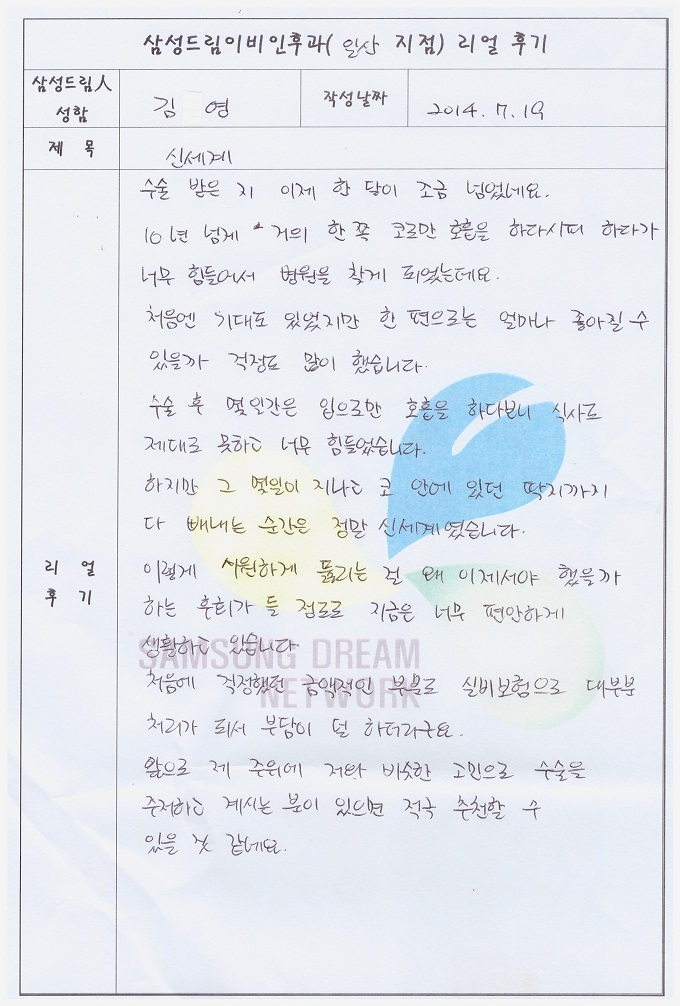 삼성드림이비인후과( 일산 지점) 리얼 후기
삼성드림人
성함
김 영
작성날짜
2014. 7. 19
제 목
신세계
수술 받은 지 이제 한 달이 조금 넘었네요.
10년 넘게 거의 한 쪽 코로만 호흡을 하다시피 하다가
너무 힘들어서 병원을 찾게 되었는데요.
처음엔 기대도 있었지만 한 편으로는 얼마나 좋아질 수
있을까 걱정도 많이 했습니다.
수술 후 몇일간은 입으로만 호흡을 하다보니 식사도
제대로 못하고 너무 힘들었습니다.
하지만 그 몇일이 지나고 코 안에 있던 딱지까지
다 빼내는 순간은 정말 신세계였습니다.
리 얼
후 기
이렇게 시원하게 뚫리는 걸 왜 이제서야 했을까
하는 후회가 들 정도로 지금은 너무 편안하게
생활하고 있습니다
SAMSUNG DREAM
NETWORK
처음에 걱정했던 금액적인 부분도 실비보험으로 대부분
처리가 되서 부담이 덜 하더라구요.
앞으로 제 주위에 저와 비슷한 고민으로 수술을
주저하고 계시는 분이 있으면 적극 추천할 수
있을 것 같네요.